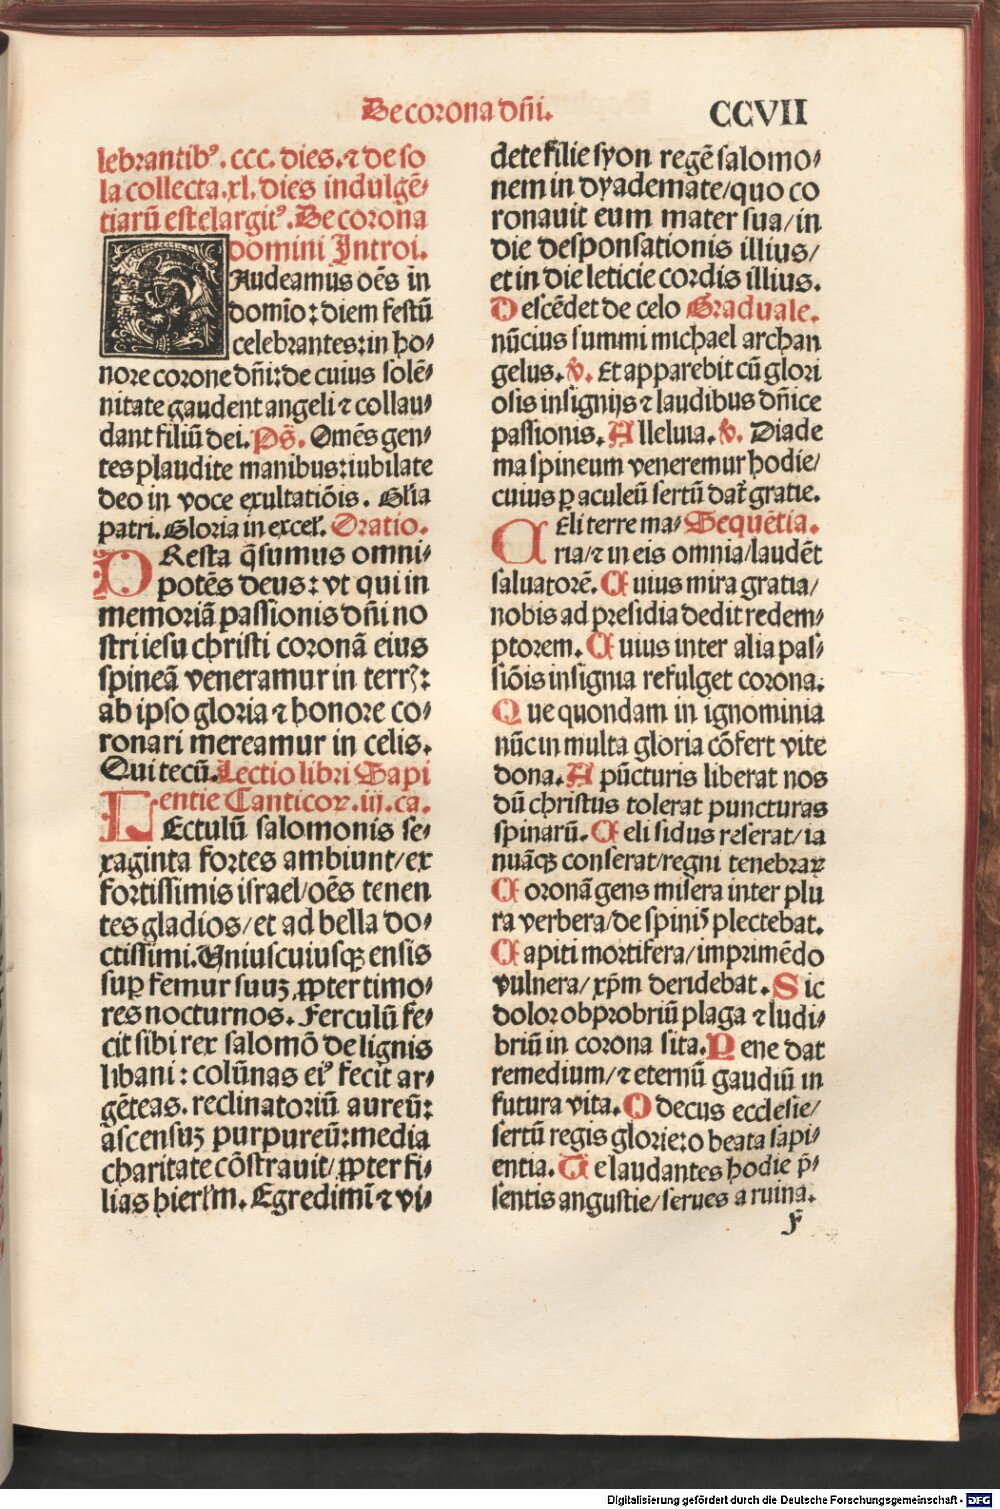 De corona dñi.
CCVII
lebrantibꝰ. ccc. dies. ⁊ de so
la collecta. xl. dies indulgẽ⸗
tiarũ est elargitꝰ. De corona
domini Introi.
GAudeamus oẽs in
domĩo: diem festũ
celebrantes: in ho⸗
nore corone dñi: de cuius solẽ⸗
nitate gaudent angeli ⁊ collau⸗
dant filiũ dei. Ps̃. Omẽs gen⸗
tes plaudite manibus: iubilate
deo in voce exultatiõis. Gl̃ia
patri. Gloria in excel̃. Oratio.
PResta q̃sumus omni⸗
potẽs deus: vt qui in
memoriã passionis dñi no
stri iesu christi coronã eius
spineã veneramur in terrꝭ:
ab ipso gloria ⁊ honore co⸗
ronari mereamur in celis.
Qui tecũ. Lectio libri Sapi
entie Canticoꝝ. iij. ca.
LEctulũ salomonis se⸗
xaginta fortes ambiunt/ ex
fortissimis israel/ oẽs tenen
tes gladios/ et ad bella do⸗
ctissimi. Uniuscuiusqꝫ ensis
suꝑ femur suuꝫ ꝓpter timo⸗
res nocturnos. Ferculũ fe⸗
cit sibi rex salomõ de lignis
libani: colũnas eiꝰ fecit ar⸗
gẽteas. reclinatoriũ aureũ:
ascensuꝫ purpureũ: media
charitate cõstrauit/ ꝓpter fi⸗
lias hierl̃m. Egredimĩ ⁊ vi⸗
dete filie syon regẽ salomo⸗
nem in dyademate/ quo co
ronauit eum mater sua/ in
die desponsationis illius/
et in die leticie cordis illius.
Descẽdet de celo Graduale.
nũcius summi michael archan
gelus. ℣. Et apparebit cũ glori
osis insignijs ⁊ laudibus dñice
passionis. Alleluia. ℣. Diade
ma spineum veneremur hodie/
cuius ꝑ aculeũ sertũ dat̃ gratie.
CEli terre ma⸗ Sequẽtia.
ria/ ⁊ in eis omnia/ laudẽt
saluatorẽ. Cuius mira gratia/
nobis ad presidia dedit redem⸗
ptorem. Cuius inter alia pas⸗
siõis insignia refulget corona.
Que quondam in ignominia
nũc in multa gloria cõfert vite
dona. A pũcturis liberat nos
dũ christus tolerat puncturas
spinarũ. Celi sidus reserat/ ia
nuãqꝫ conserat/ regni tenebraꝝ
Coronã gens misera inter plu
ra verbera/ de spinis̃ plectebat.
Capiti mortifera/ imprimẽdo
vulnera/ xp̃m deridebat. Sic
dolor obprobriũ plaga ⁊ ludi⸗
briũ in corona sita. Pene dat
remedium/ ⁊ eternũ gaudiũ in
futura vita. O decus ecclesie/
sertũ regis glorie: o beata sapi⸗
entia. Te laudantes hodie p̃⸗
sentis angustie/ serues a ruina.
Digitalisierung gefördert durch die Deutsche Forschungsgemeinschaft - DFG